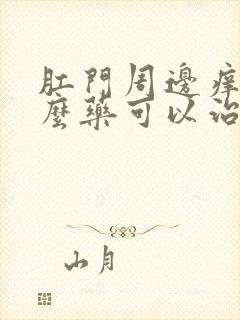 肛門周邊痒
麼藥可以治
山月